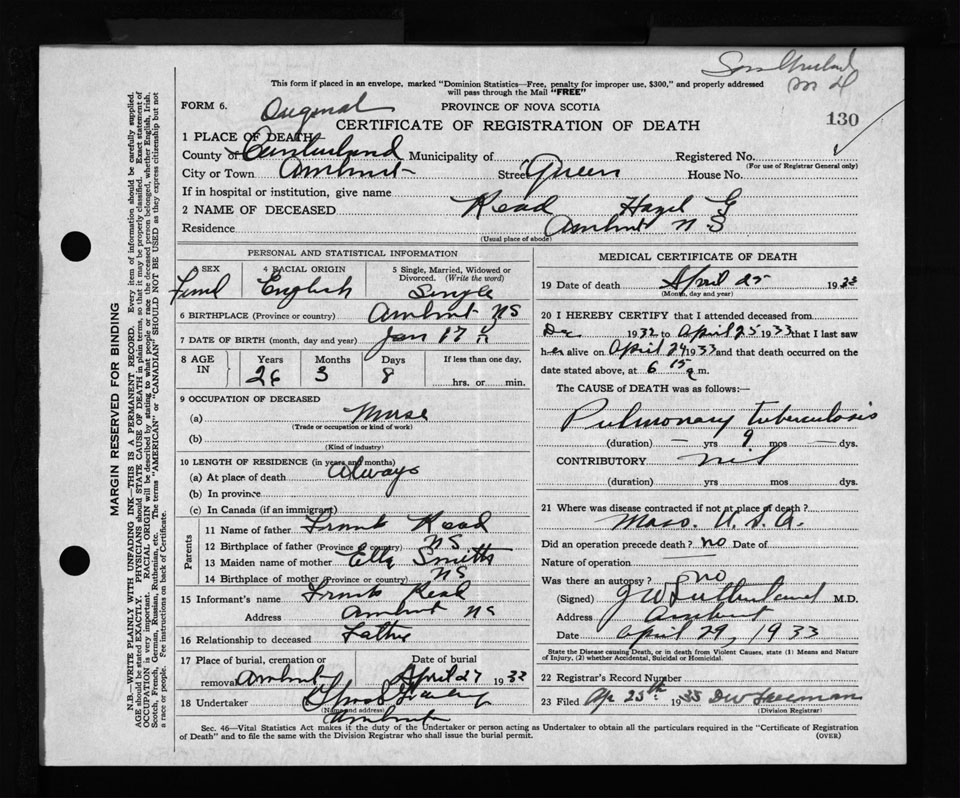 This form if placed in an envelope, marked "Dominion Statistics—Free, penalty for improper use, $300," and properly addressed
will pass through the Mail "FREE"
FORM 6.
Original
PROVINCE OF NOVA SCOTIA
CERTIFICATE OF REGISTRATION OF DEATH
130
1 PLACE OF DEATH
County of Cumberland Municipality of Registered No.
(For use of Registrar General only)
City or Town Amherst Street Queen House No.
If in hospital or institution, give name
2 NAME OF DECEASED Read Hazel G
Residence Amherst N S
(Usual place of abode)
PERSONAL AND STATISTICAL INFORMATION
3 SEX 4 RACIAL ORIGIN 5 Single, Married, Widowed or
Divorced. (Write the word)
Feml English Single
6 BIRTHPLACE (Province or country) Amherst NS
7 DATE OF BIRTH (month, day and year) Jan 17
8 AGE IN Years Months Days If less than one day.
26 3 8 hrs. or min.
9 OCCUPATION OF DECEASED
(a) Nurse
(Trade or occupation or kind of work)
(b)
(Kind of industry)
10 LENGTH OF RESIDENCE (in years and months)
(a) At place of death Always
(b) In province
(c) In Canada (if an immigrant)
Parents
11 Name of father Frank Read
12 Birthplace of father (Province or country) NS
13 Maiden name of mother Ella Smith
14 Birthplace of mother (Province or country) NS
15 Informant's name Frank Read
Address Amherst NS
16 Relationship to deceased Father
17 Place of burial, cremation or Date of burial
removal Amherst April 27 1933
18 Undertaker
(Name and address)
Amherst
MEDICAL CERTIFICATE OF DEATH
19 Date of death April 25 1933
(Month, day and year)
20 I HEREBY CERTIFY that I attended deceased from
Dec 1932 to April 25 1933 that I last saw
her alive on April 24 1933 and that death occurred on
date stated above, at 6 15 a.m.
The CAUSE OF DEATH was as follows:—
Pulmonary tuberculosis
(duration) — yrs 9 mos — dys.
CONTRIBUTORY nil
(duration) yrs mos dys.
21 Where was disease contracted if not at place of death?
Mass. U.S.A.
Did an operation precede death? no Date of
Nature of operation
Was there an autopsy? no
(Signed) J W Sutherland M.D.
Address Amherst
Date April 29, 1933
State the Disease causing Death, or in death from Violent Causes, state (1) Means and Nature
of Injury, (2) whether Accidental, Suicidal or Homicidal.
22 Registrar's Record Number
23 Filed Ap 25th 1933 DW Freeman
(Division Registrar)
Sec. 46—Vital Statistics Act makes it the duty of the Undertaker or person acting as Undertaker to obtain all the particulars required in the "Certificate of Registration
of Death" and to file the same with the Division Registrar who shall issue the burial permit.
(OVER)
MARGIN RESERVED FOR BINDING
N.B.—WRITE PLAINLY WITH UNFADING INK—THIS IS A PERMANENT RECORD. Every item of information should be carefully supplied.
AGE should be stated EXACTLY. PHYSICIANS should STATE CAUSE OF DEATH in plain terms, so that it may be properly classified. Exact statement of
OCCUPATION is very important. RACIAL ORIGIN will be described by stating to what people or race the deceased person belonged, whether English, Irish,
Scotch, French, German, Russian, Ruthenian, etc. The terms "AMERICAN" or "CANADIAN" SHOULD NOT BE USED as they express citizenship but not
a race or people. See instructions on back of Certificate.